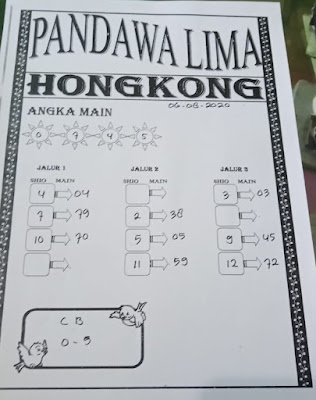 PANDAWA LIMA
HONGKONG
06-08-2020
ANGKA MAIN
0 7 4 5
JALUR 1 JALUR 2 JALUR 3
SHIO MAIN SHIO MAIN SHIO MAIN
4 04 3 03
7 79 2 38
10 70 5 05 9 45
11 59 12 72
CB
0-9